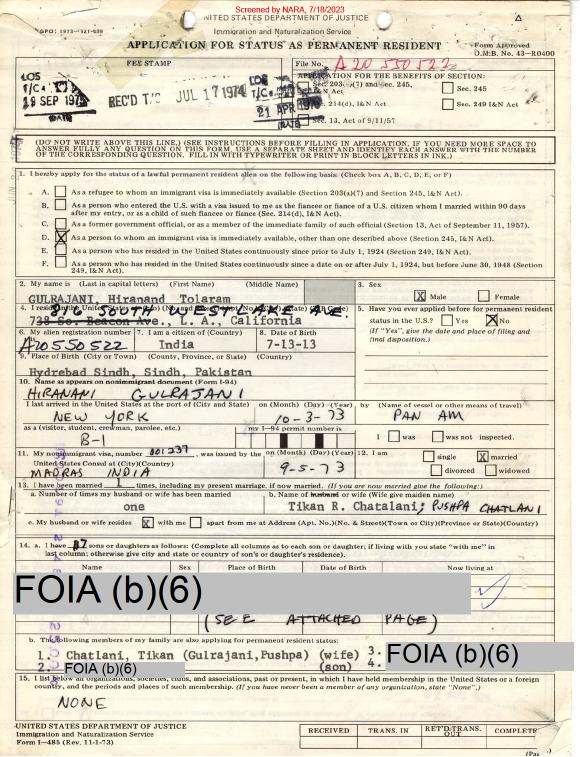 Screened by NARA, 7/18/2023
UNITED STATES DEPARTMENT OF JUSTICE
GPO: 1973—521-039
Immigration and Naturalization Service
APPLICATION FOR STATUS AS PERMANENT RESIDENT
Form Approved
O.M.B. No. 43—R0400
FEE STAMP
File No. A20 550 522
APPLICATION FOR THE BENEFITS OF SECTION:
Sec. 203(a)(7) and Sec. 245, I&N Act
Sec. 245
Sec. 214(d), I&N Act
Sec. 249 I&N Act
Sec. 13, Act of 9/11/57
LOS
T/C
19 SEP 197
DATE
REC'D T/C JUL 17 1974
LOS
T/C
21 APR
DATE
(DO NOT WRITE ABOVE THIS LINE.) (SEE INSTRUCTIONS BEFORE FILLING IN APPLICATION. IF YOU NEED MORE SPACE TO
ANSWER FULLY ANY QUESTION ON THIS FORM, USE A SEPARATE SHEET AND IDENTIFY EACH ANSWER WITH THE NUMBER
OF THE CORRESPONDING QUESTION. FILL IN WITH TYPEWRITER OR PRINT IN BLOCK LETTERS IN INK.)
1. I hereby apply for the status of a lawful permanent resident alien on the following basis: (Check box A, B, C, D, E, or F)
A. As a refugee to whom an immigrant visa is immediately available (Section 203(a)(7) and Section 245, I&N Act).
B. As a person who entered the U.S. with a visa issued to me as the fiancee or fiance of a U.S. citizen whom I married within 90 days
after my entry, or as a child of such fiancee or fiance (Sec. 214(d), I&N Act).
C. As a former government official, or as a member of the immediate family of such official (Section 13, Act of September 11, 1957).
D. X As a person to whom an immigrant visa is immediately available, other than one described above (Section 245, I&N Act).
E. As a person who has resided in the United States continuously since prior to July 1, 1924 (Section 249, I&N Act).
F. As a person who has resided in the United States continuously since a date on or after July 1, 1924, but before June 30, 1948 (Section
249, I&N Act).
2. My name is (Last in capital letters) (First Name) (Middle Name)
GULRAJANI, Hiranand Tolaram
3. Sex
X Male Female
4. I reside in the United States at:
SOUTH WESTLAKE AVE.
738 So. Beacon Ave., L. A., California
5. Have you ever applied before for permanent resident
status in the U.S.? Yes X No
(If "Yes", give the date and place of filing and
final disposition.)
6. My alien registration number
A20550522
7. I am a citizen of (Country)
India
8. Date of Birth
7-13-13
9. Place of Birth (City or Town) (County, Province, or State) (Country)
Hydrebad Sindh, Sindh, Pakistan
10. Name as appears on nonimmigrant document (Form I-94)
HIRANANI GULRAJANI
I last arrived in the United States at the port of (City and State)
NEW YORK
on (Month) (Day) (Year)
10-3-73
by (Name of vessel or other means of travel)
PAN AM
as a (visitor, student, crewman, parolee, etc.)
B-1
my I-94 permit number is
I was was not inspected.
11. My nonimmigrant visa, number 001237, was issued by the
United States Consul at (City)(Country)
MADRAS INDIA
on (Month) (Day) (Year)
9-5-73
12. I am
single X married
divorced widowed
13. I have been married 1 times, including my present marriage, if now married. (If you are now married give the following:)
a. Number of times my husband or wife has been married
one
b. Name of husband or wife (Wife give maiden name)
Tikan R. Chatalani; PUSHPA CHATLANI
c. My husband or wife resides X with me apart from me at Address (Apt. No.)(No. & Street)(Town or City)(Province or State)(Country)
14. a. I have 7 sons or daughters as follows: (Complete all columns as to each son or daughter; if living with you state "with me" in
last column; otherwise give city and state or country of son's or daughter's residence).
Name Sex Place of Birth Date of Birth Now living at
FOIA (b)(6)
(SEE ATTACHED PAGE)
b. The following members of my family are also applying for permanent resident status:
1. Chatlani, Tikan (Gulrajani,Pushpa) (wife) 3. FOIA (b)(6)
2. FOIA (b)(6) (son) 4.
15. I list below all organizations, societies, clubs, and associations, past or present, in which I have held membership in the United States or a foreign
country, and the periods and places of such membership. (If you have never been a member of any organization, state "None".)
NONE
UNITED STATES DEPARTMENT OF JUSTICE
Immigration and Naturalization Service
Form I-485 (Rev. 11-1-73)
RECEIVED TRANS. IN RET'D/TRANS. OUT COMPLETE